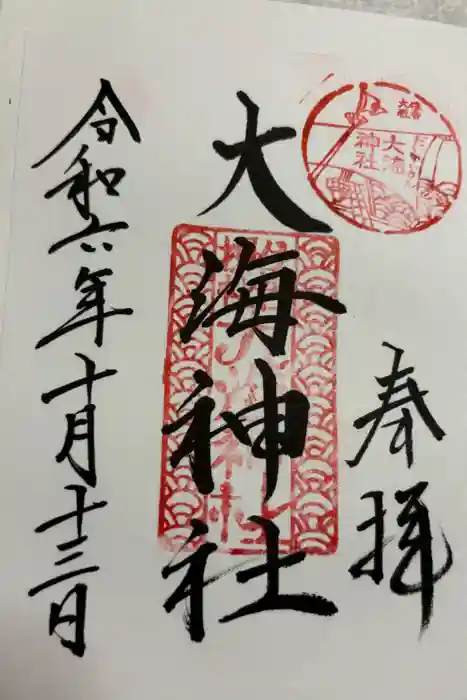 奉拝
大海神社
令和六年十月十三日
大海
神社